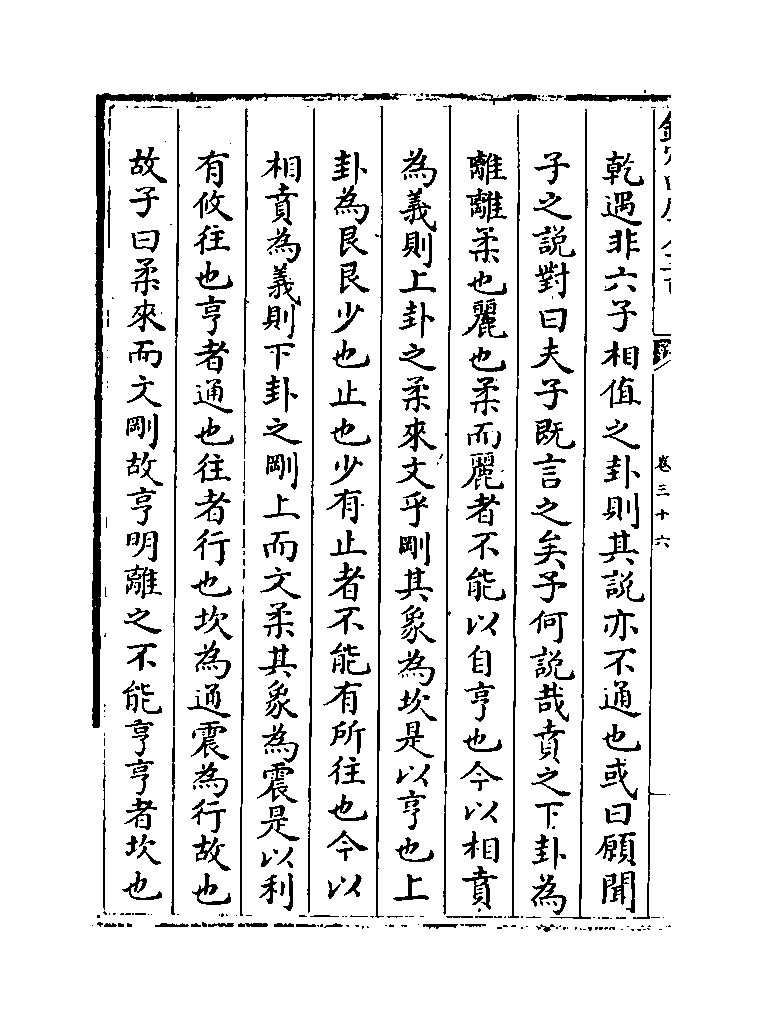 乾遇非六子相值之卦則其説亦不通也或曰願聞
子之説對曰夫子既言之矣予何説哉賁之下卦為
離離柔也麗也柔而麗者不能以自亨也今以相賁
為義則上卦之柔來文乎剛其象為坎是以亨也上
卦為艮艮少也止也少有止者不能有所往也今以
相賁為義則下卦之剛上而文柔其象為震是以利
有攸往也亨者通也往者行也坎為通震為行故也
故子曰柔來而文剛故亨明離之不能亨亨者坎也
卷三十六